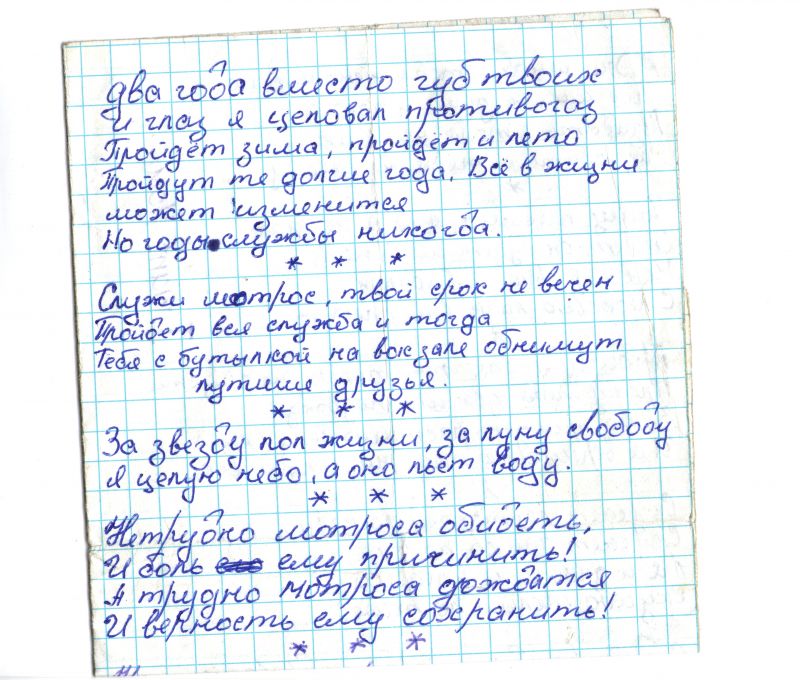 два года вместо губ твоих
и глаз я целовал противогаз
Пройдёт зима, пройдёт и лето
Пройдут те долгие года. Всё в жизни
может изменится
Но годы службы никогда.
* * *
Служи мотрос, твой срок не вечен
Пройдет вся служба и тогда
Тебя с бутылкой на вокзале обнимут
лутшие друзья.
* * *
За звезду пол жизни, за луну свободу
Я целую небо, а оно пьёт воду.
* * *
Нетрудно мотроса обидеть,
И боль ему причинить!
А трудно мотроса дождатся
И верность ему сохранить!
* * *